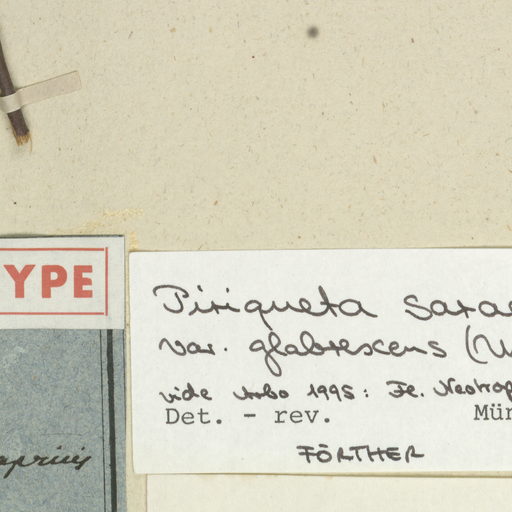 YPE
Piriqueta sarae
var. glabrescens (U
vide Arbo 1995: Fl. Neotrop
Det. - rev. Mün
FÖRTHER